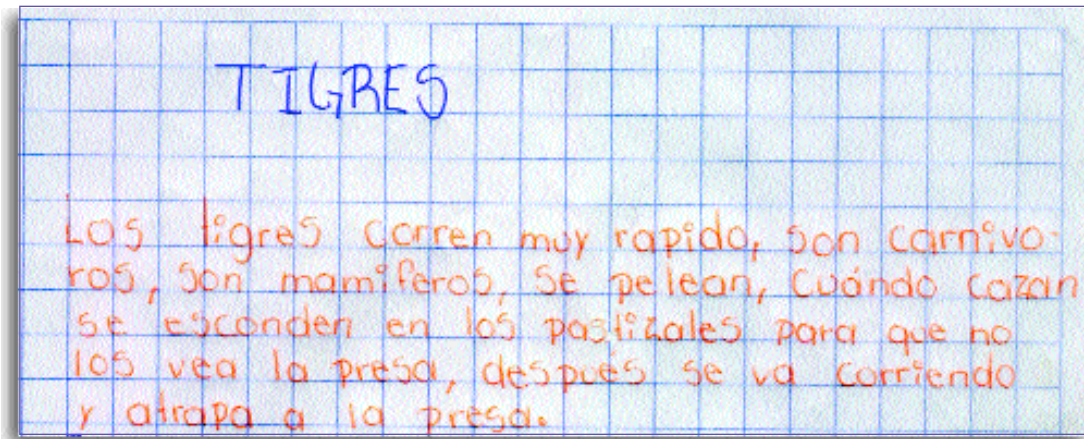 TIGRES
Los tigres corren muy rapido, son carnivo-
ros, son mamiferos, se pelean, cuándo cazan
se esconden en los pastizales para que no
los vea la presa, después se va corriendo
y atrapa a la presa.